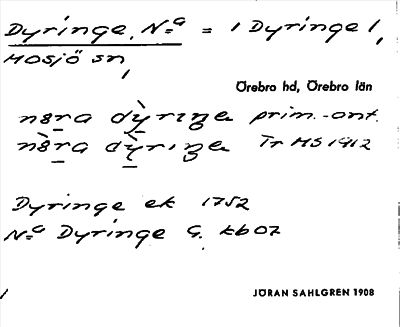 Dyringe, N:a = 1 Dyringe 1,
Mosjö sn,
Örebro hd, Örebro län
nṣra dỳrıŋe prim.-ant.
nṣ̀ra dỳrıŋe Tr MS 1912
Dyringe ek 1752
N:a Dyringe G. kb 07
JÖRAN SAHLGREN 1908